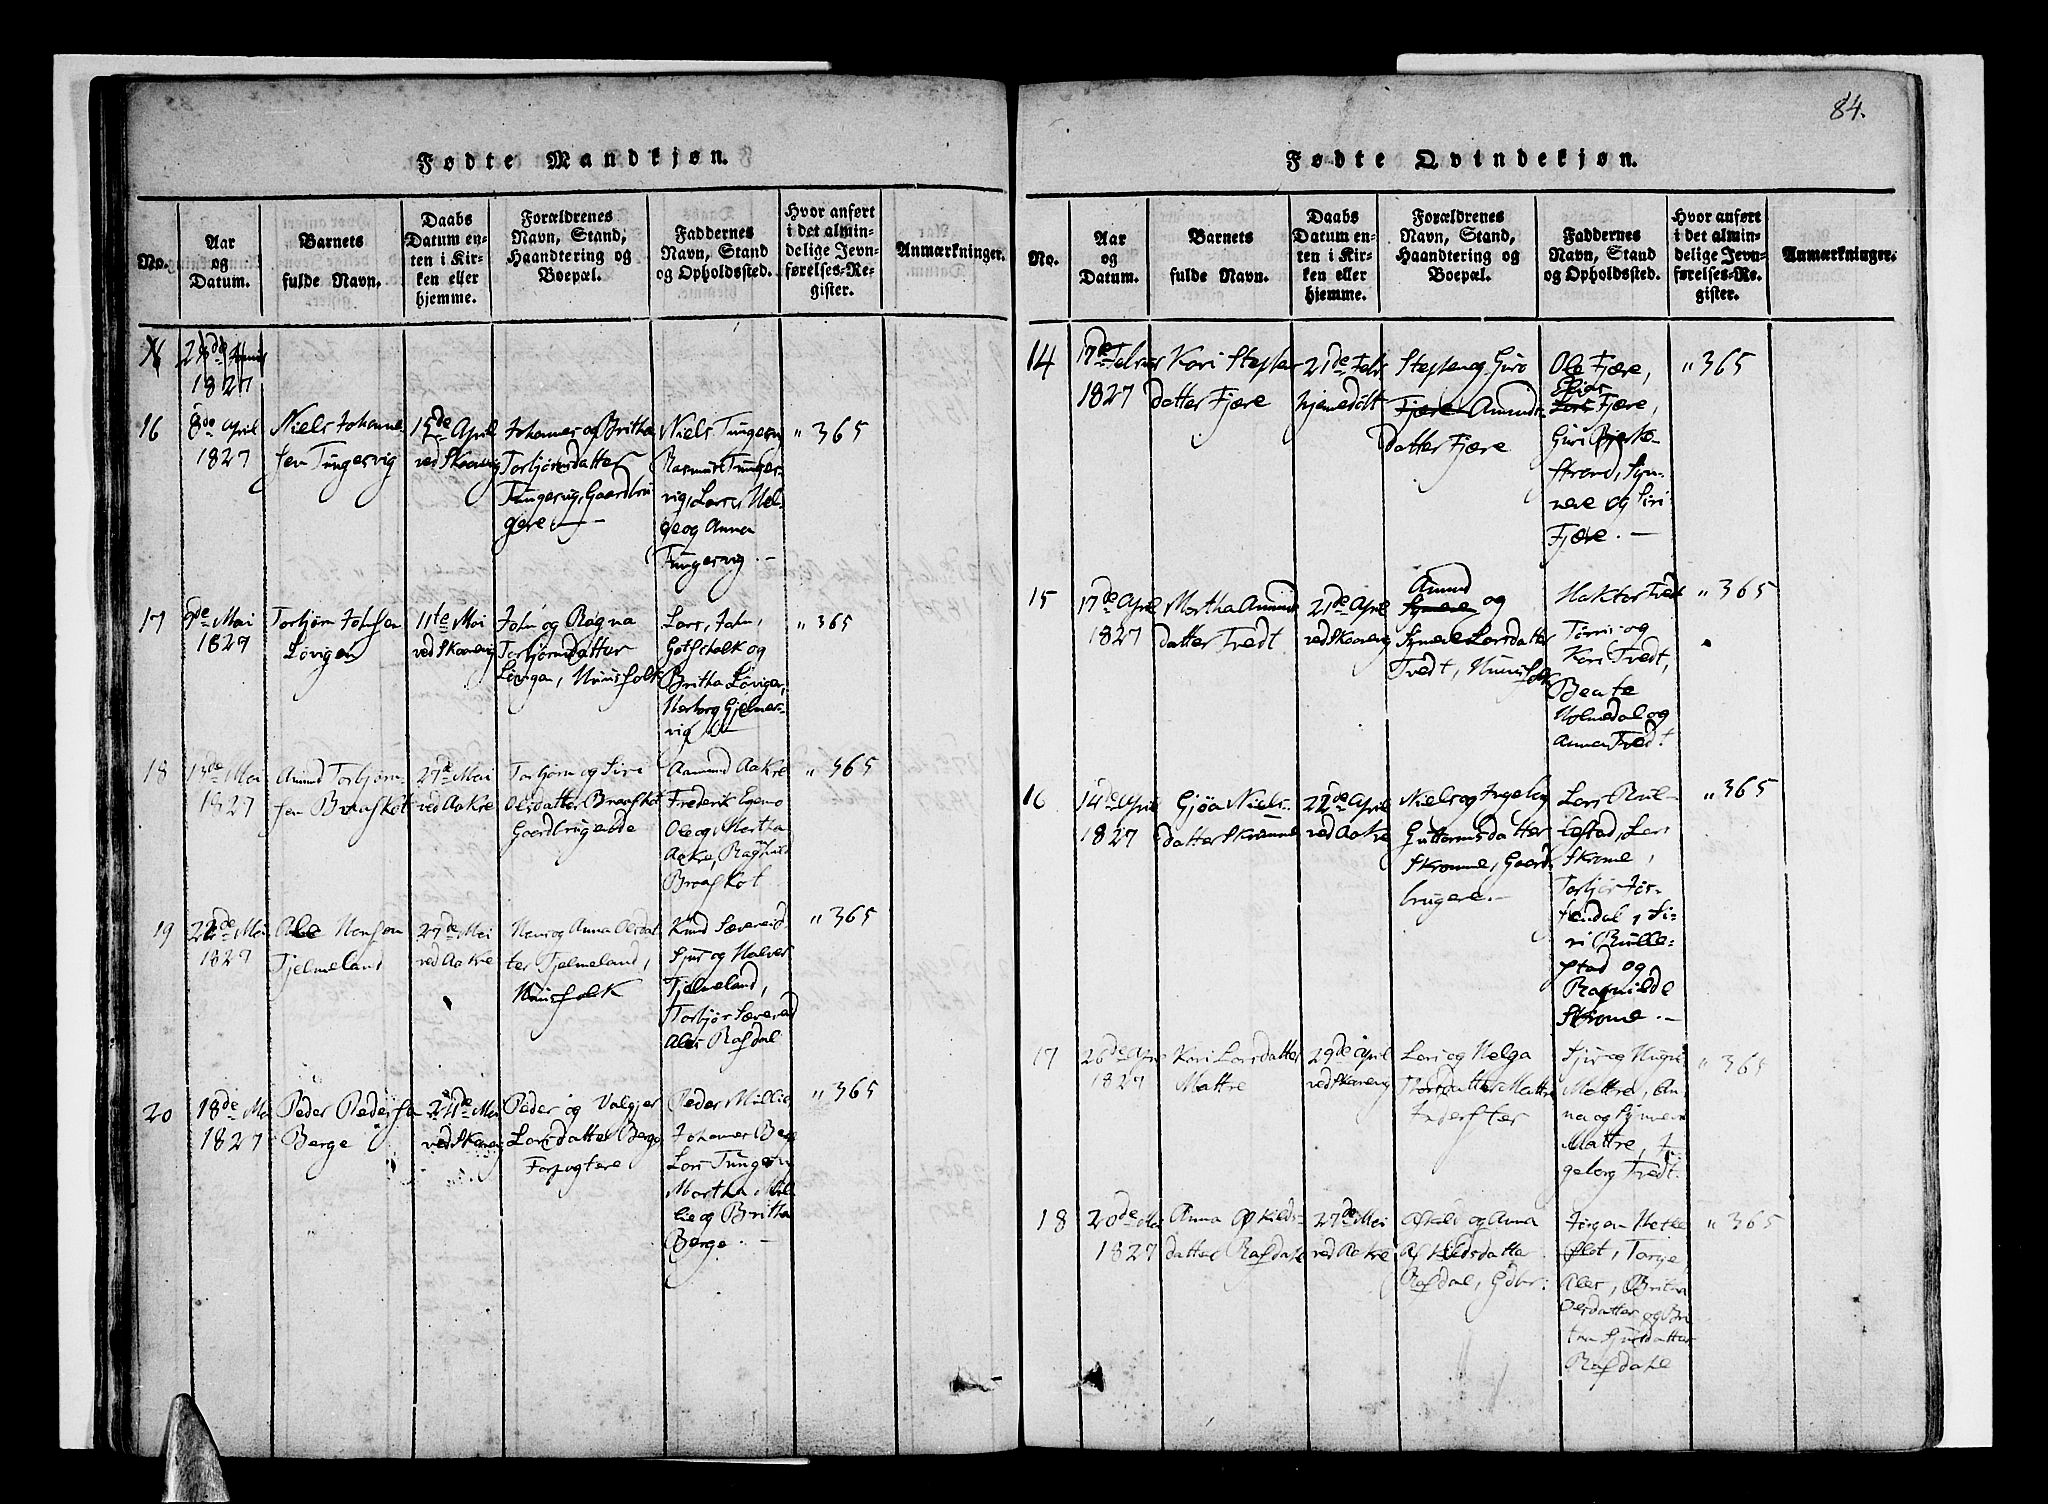 84.
Fødte Mandkjøn.
No.
Aar
og
Datum.
Barnets
fulde Navn.
Daabs
Datum en-
ten i Kir-
ken eller
hjemme.
Forældrenes
Navn, Stand,
Haandtering og
Boepæl.
Faddernes
Navn, Stand
og Opholdssted.
Hvor anført
i det almin-
delige Jevn-
førelses-Re-
gister.
Anmærkninger.
1827
16
8de April
1827
Niels Johanne-
sen Tungesvig
15de April
ved Skaanevig
Johannes og Britha
Torbjørnsdatter
Tungesvig, Gaardbru
gere
Niels Tungesvig
Rasmus Tunges-
vig, Lars, Hel-
ge og Anna
Tungesvig.
" 365
17
8de Mai
1827
Torbjørn Johnsen
Løvigen
11te Mai
ved Skaanevig
John og Ragna
Torbjørnsdatter
Løvigen, Huusfolk
Lars, John,
Gotschalk og
Britha Løvigen,
Herborg Gjelmes-
vig
" 365
18
13de Mai
1827
Amund Torbjørn-
sen Braaskot
27de Mai
ved Aakre
Torbjørn og Siri
Olsdatter Braaskot
Gaardbrugende
Aamund Aakre
Frederik Egemo
Ole og Martha
Aakre, Raghild
Braaskot
" 365
19
22de Mai
1827
Ole Hansen
Tjelmeland
27de Mai
ved Aakre
Hans og Anna Olsdat
ter Tjelmeland,
Huusfolk
Knud Sævereid
Sjur og Halver
Tjelmeland,
Torbjør Sævereid
Rafdal
" 365
20
18de Mai
1827
Peder Pedersen
Berge
24de Mai
ved Skaanevig
Peder og Valgjer
Larsdatter Berge
Forpagtere
Peder Millie,
Johannes Berge
Lars Tungesvig
Martha Mil-
lie og Britha
Berge.
" 365
Fødte Qvindekjøn.
No.
Aar
og
Datum.
Barnets
fulde Navn.
Daabs
Datum en-
ten i Kir-
ken eller
hjemme.
Forældrenes
Navn, Stand,
Haandtering og
Boepæl.
Faddernes
Navn, Stand
og Opholdssted.
Hvor anført
i det almin-
delige Jevn-
førelses-Re-
gister.
Anmærkninger.
14
17de Februar
1827
Kari Stephen
datter Fjære
21de Febr
hjemedøbt
Stephen og Guro
Fjære Amunds-
datter Fjære
Ole Fjære,
Lars Fjære,
Guri Bjerke-
strand, Syn-
neve og Siri
Fjære.
" 365
15
17de April
1827
Martha Amund
datter Tvedt
21de April
ved Skaanevig
Amund
Synneve og
Synneve Larsdatter
Tvedt, Huusfolk
Haktor Tvedt
Tørris og
Kari Tvedt,
Beate
Holmedal og
Anna Tvedt
" 365
16
14de April
1827
Gjøa Niels-
datter Skromme
22de April
ved Aakre
Niels og Ingeborg
Guttormsdatter
Skromme, Gaard-
brugere.
Lars Rul-
lestad, Lars
Skrome,
Torbjør Jøs-
sendal, Si-
ri Rulle-
stad og
Ragnilde
Skrome.
" 365
17
26de April
1827
Kari Larsdatter
Mattre
29de April
ved Skaanevig
Lars og Helga
Thorsdatter Mattre
Inderster
Sjur og
Mattre, An-
na og Synneve
Mattre, In
geborg Tvedt.
" 365
18
20de Mai
1827
Anna Askilds-
datter Rafdahl
27de Mai
ved Aakre
Askild og Anna
Askildsdatter
Rafdal, Gdbr:
Jørgen Hetle
flot, Torge
Oles, Britha
Olsdatter og Bri
tha Sjursdatter
Rafdahl
" 365